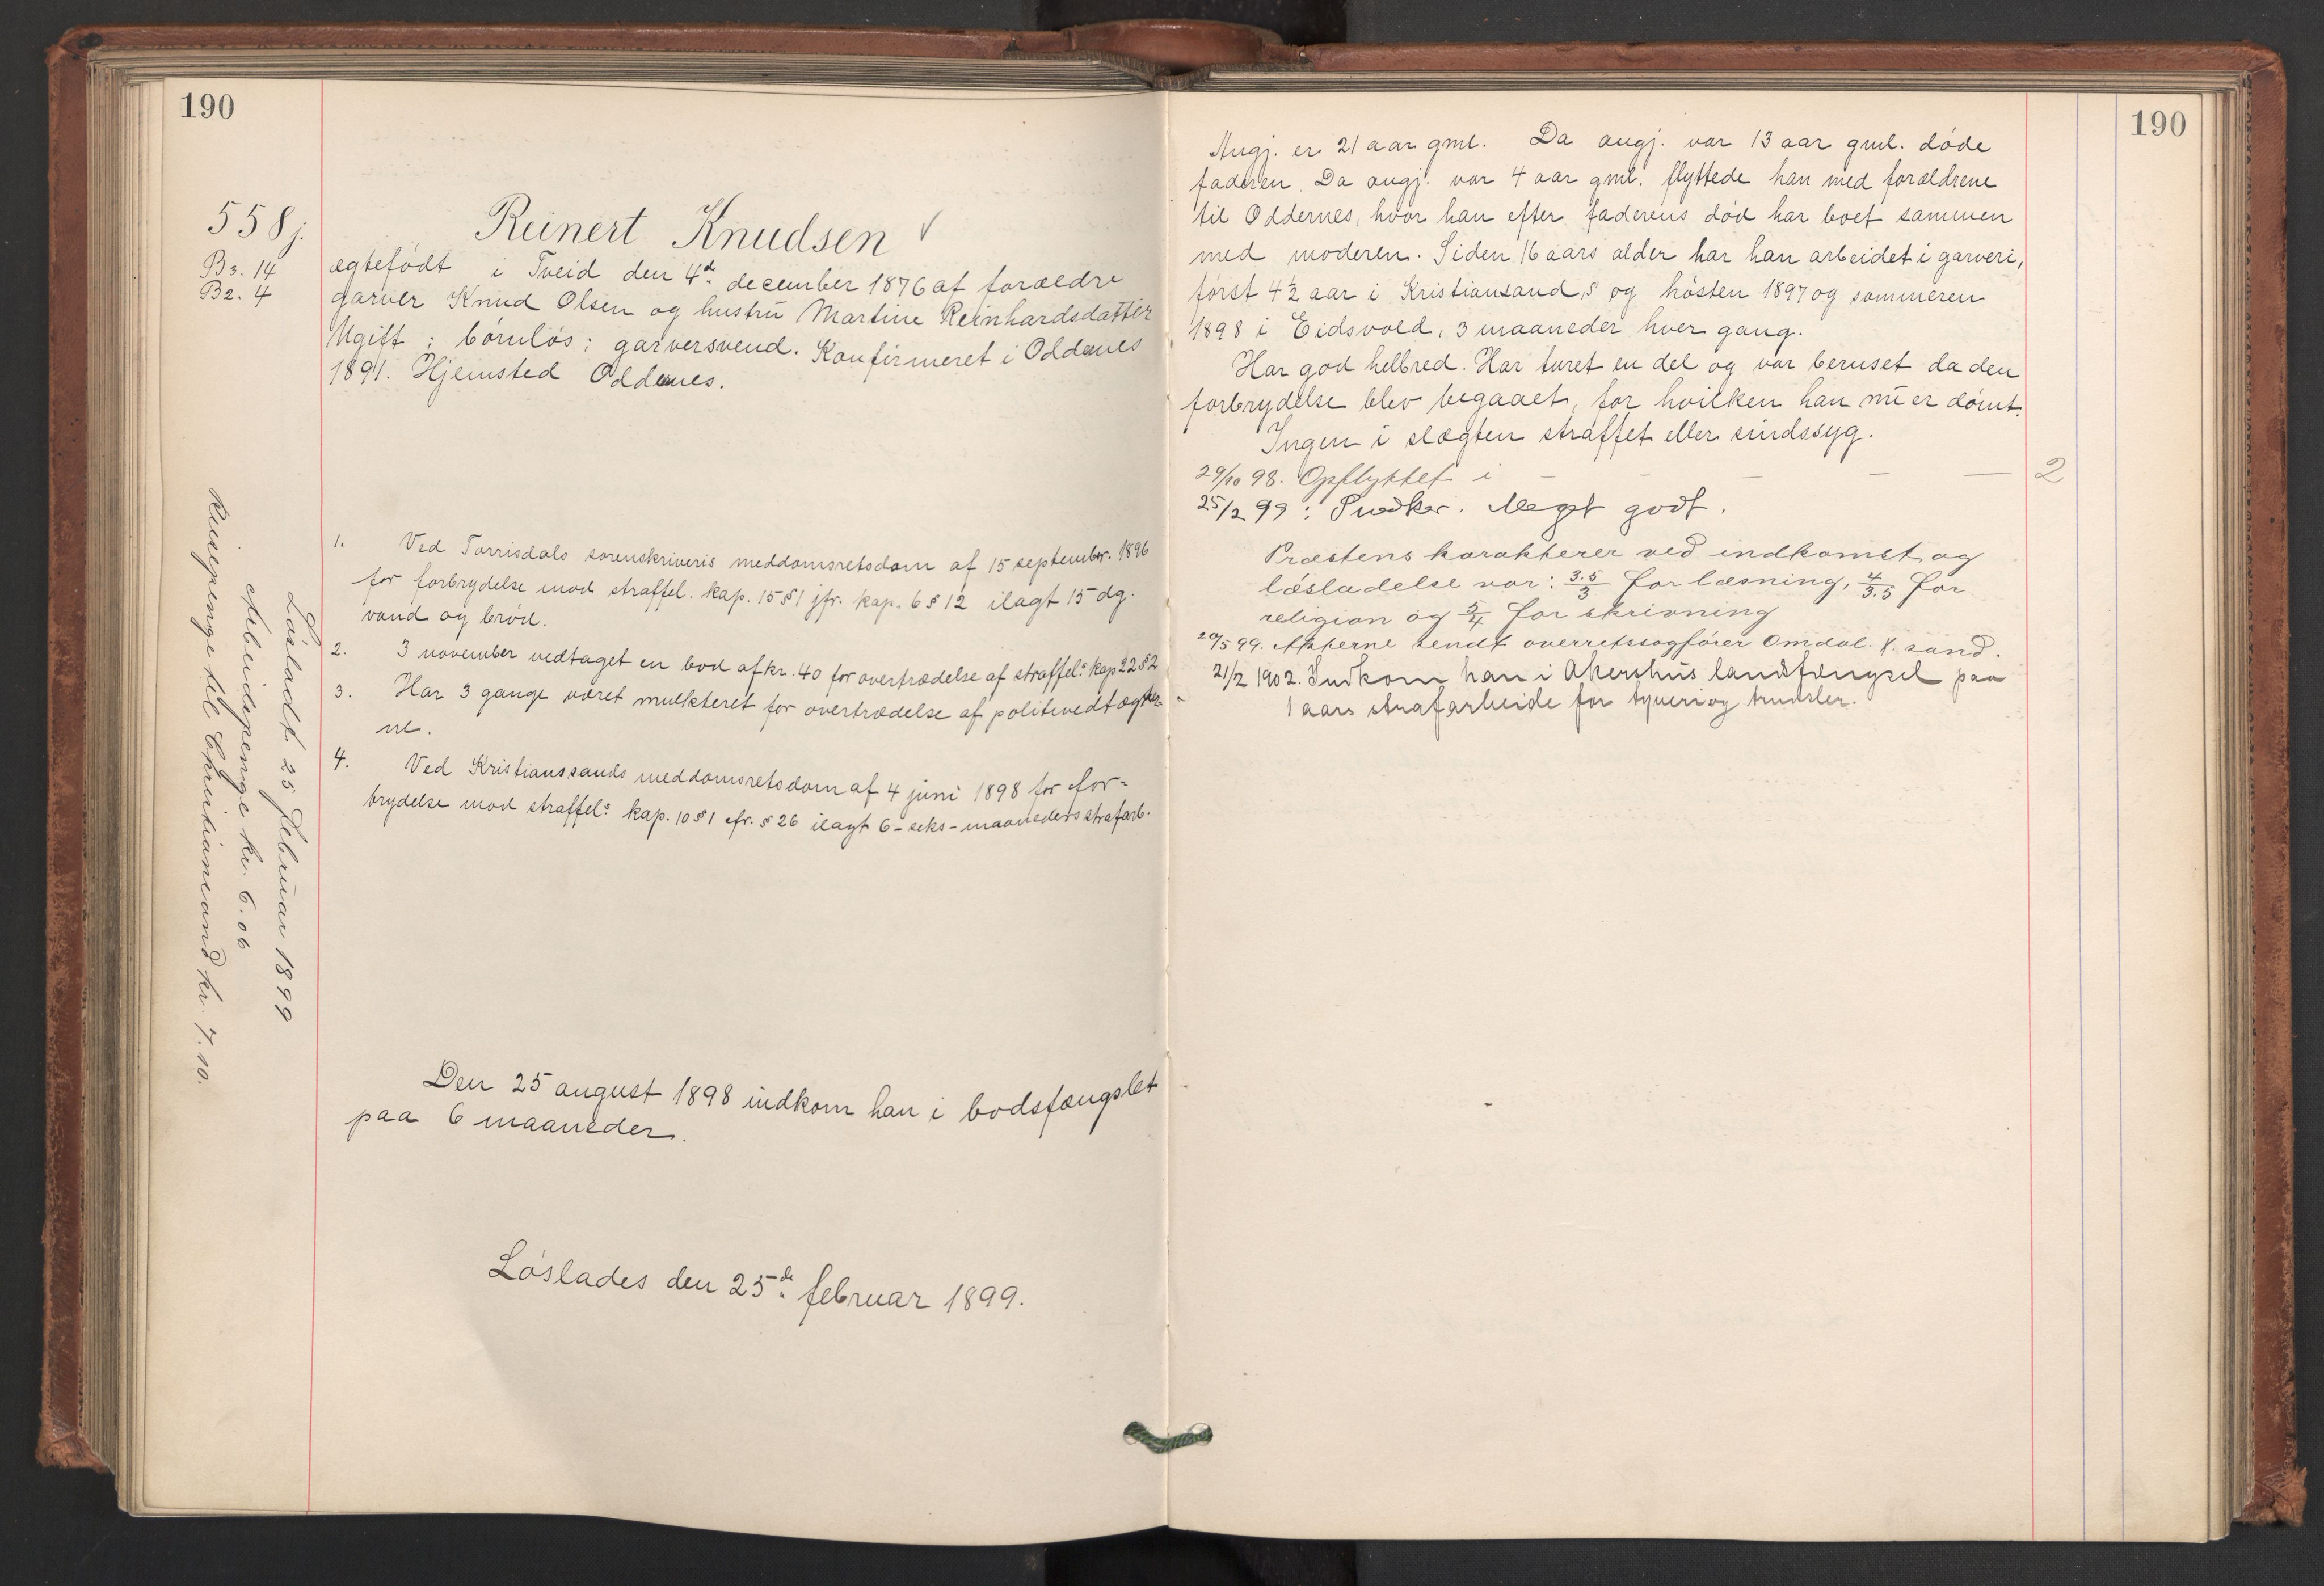 190
558j.
B3. 14
B2. 4
Reinert Knudsen √
ægtefödt i Tveid den 4de december 1876 af forældre
garver Knud Olsen og hustru Martine Reinhardsdatter
Ugift; börnlös; garversvend. Konfirmeret i Oddernes
1891. Hjemsted Oddernes.
1. Ved Torrisdals sorenskriveris meddomsretsdom af 15 september 1896
for forbrydelse mod straffel. kap. 15 § 1 jfr. kap. 6 § 12 ilagt 15 dg.
vand og bröd.
2. 3 november vedtaget en bod af kr. 40 for overtrædelse af straffels kap 22 § 2
3. Har 3 gange været mulkteret for overtrædelse af politivedtægter-
ne.
4. Ved Kristianssands meddomsretsdom af 4 juni 1898 for for-
brydelse mod straffels kap. 10 § 1 cfr. § 26 ilagt 6 - seks - maaneders strafarb.
Den 25 august 1898 indkom han i bodsfængslet
paa 6 maaneder.
Löslades den 25de februar 1899.
Lösladt 25 februar 1899
Arbeidspenge kr. 6.06
Reisepenge til Christiansand kr. 7.10.
190
Angj. er 21 aar gml. Da angj. var 13 aar gml. döde
faderen. Da angj. var 4 aar gml. flyttede han med forældrene
til Oddernes, hvor han efter faderens död har boet sammen
med moderen. Siden 16 aars alder har han arbeidet i garveri,
först 4½ aar i Kristiansand S og hösten 1897 og sommeren
1898 i Eidsvold, 3 maaneder hver gang.
Har god helbred. Har turet en del og var beruset da den
forbrydelse blev begaaet, for hvilken han nu er dömt.
Ingen i slægten straffet eller sindssyg.
29/10 98. Opflyttet i — — — 2
25/2 99: Snedker. Meget godt.
Præstens karakterer ved indkomst og
lösladelse var: 3.5/3 for læsning, 4/3.5 for
religion og 5/4 for skrivning
20/5 99. Akterne sendt overretssagförer Omdal. K. sand.
21/2 1902. Indkom han i Akershus landsfængsel paa
1 aars strafarbeide for tyveri og trudsler.